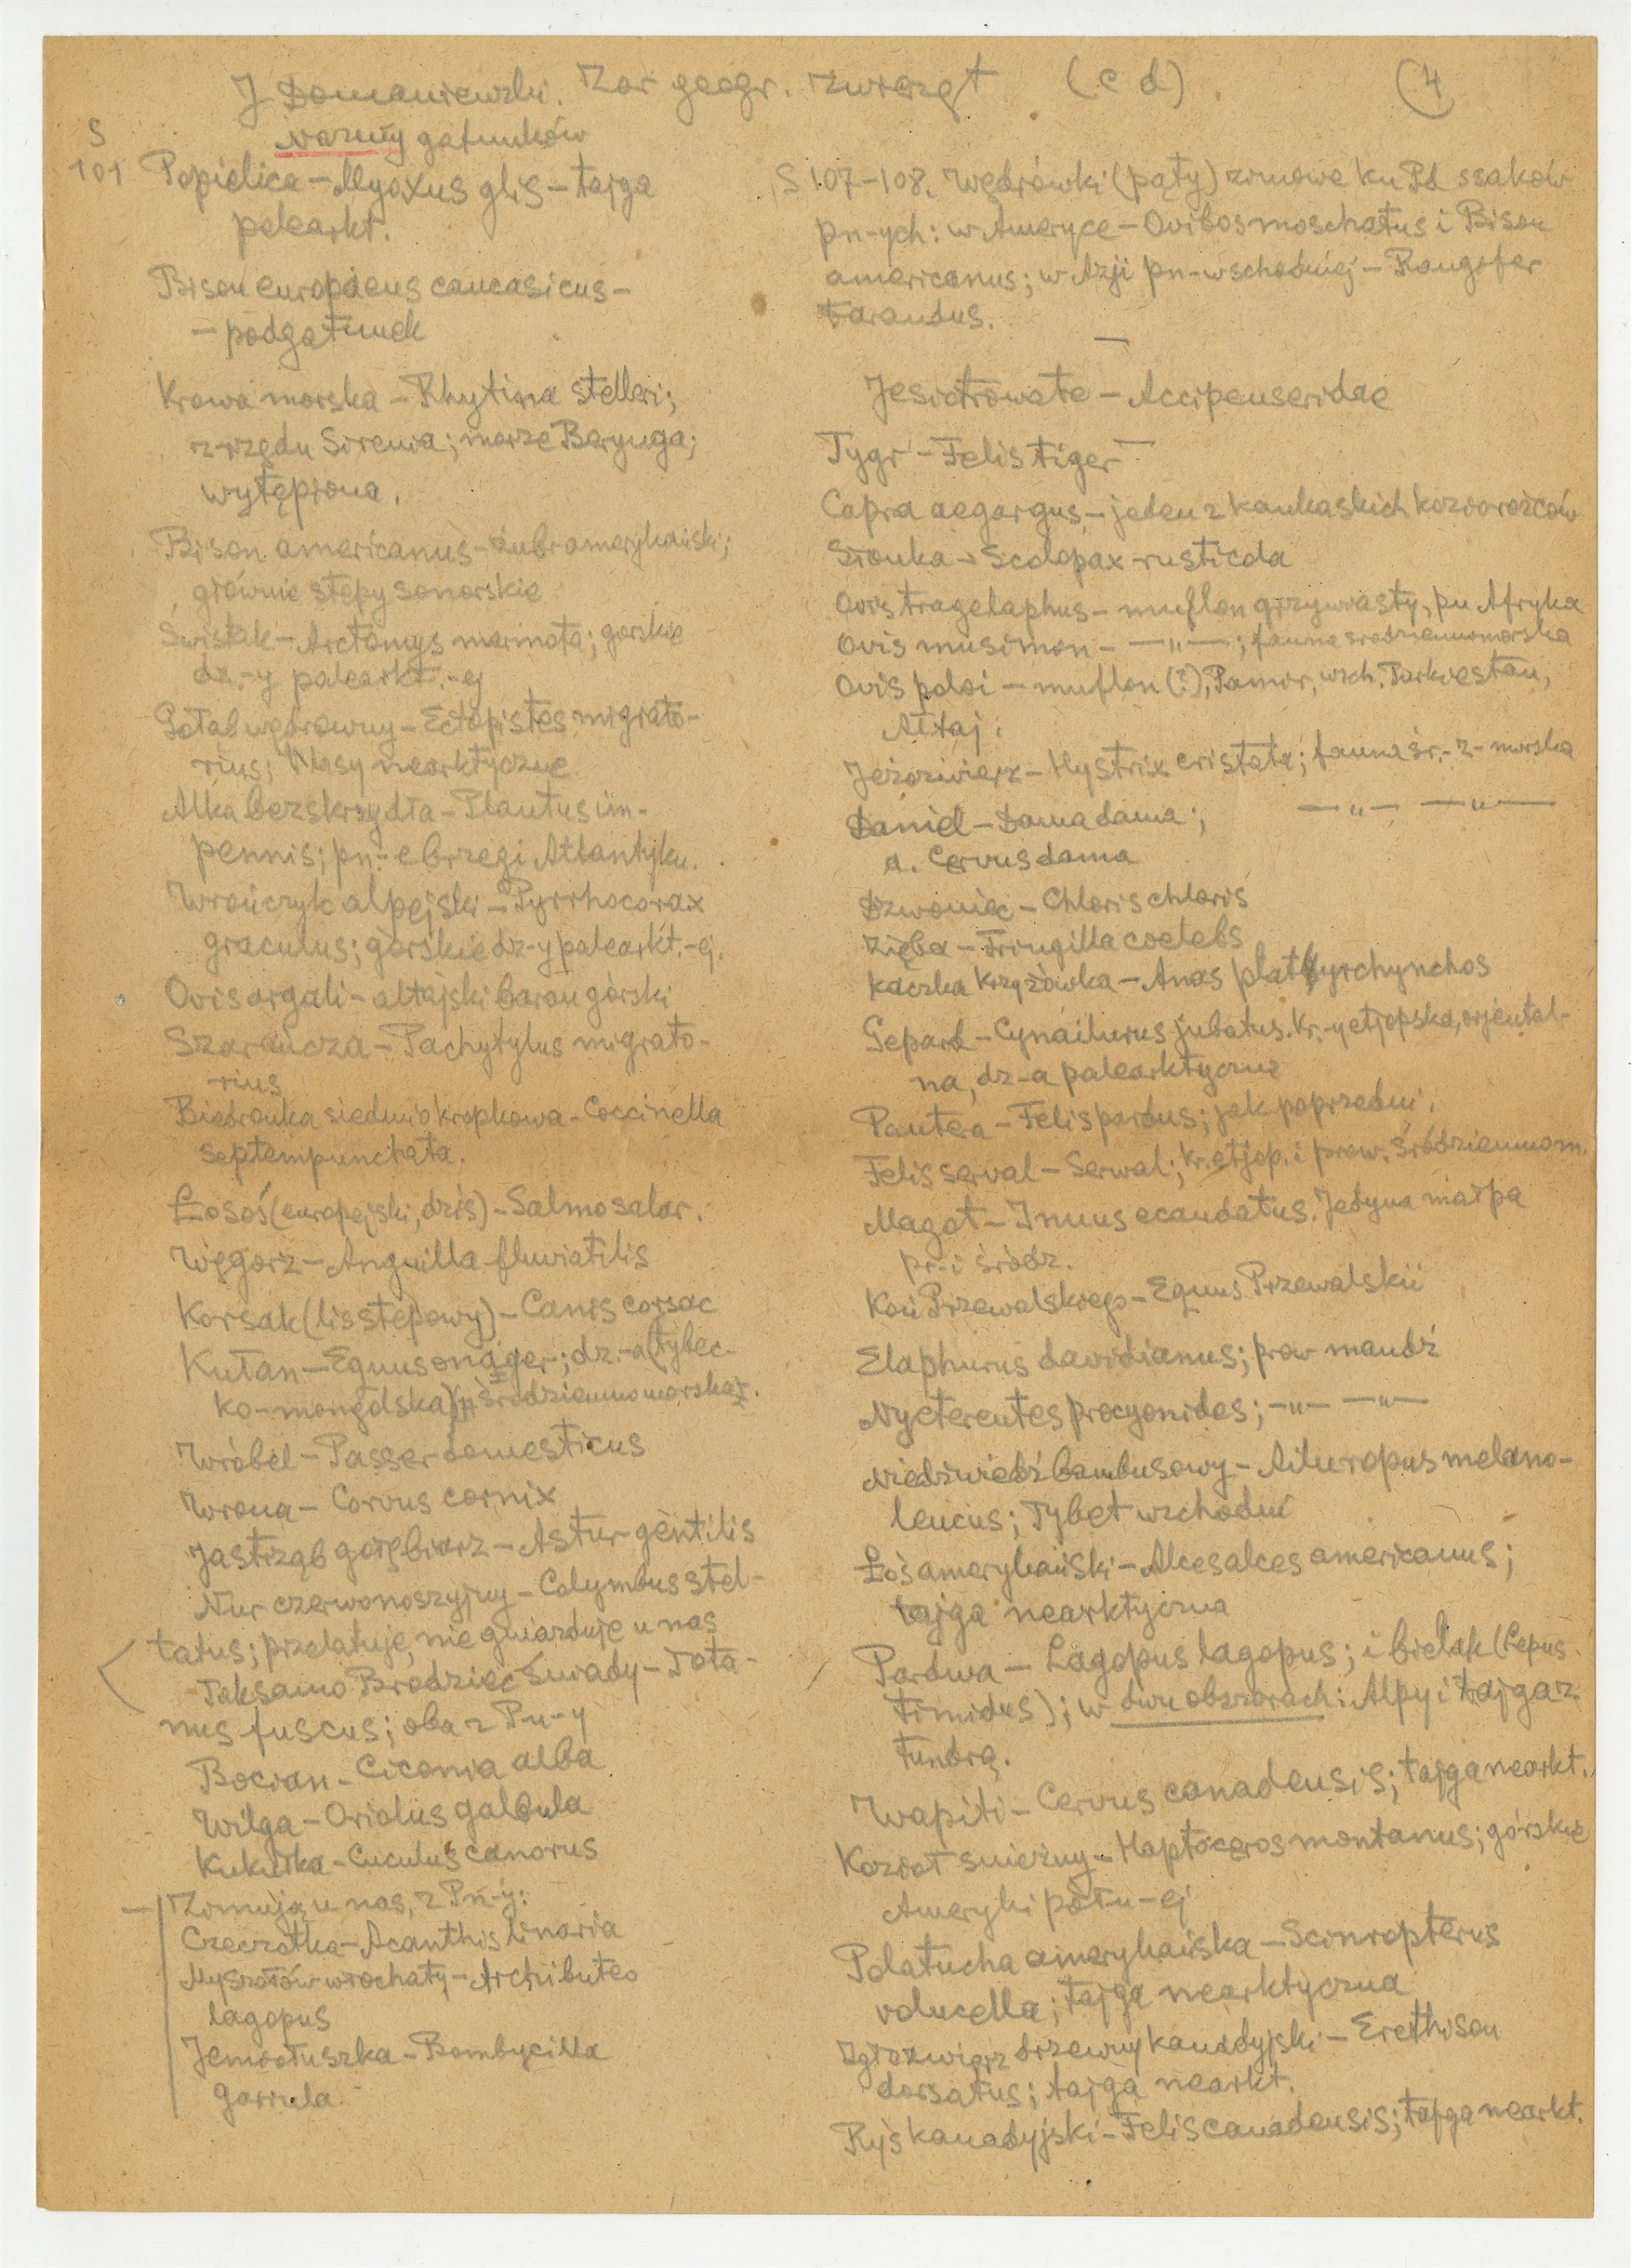 J Domaniewski. Zar geogr. zwierząt (c d) (4)
Nazwy gatunków
S
101 Popielica – Myoxus glis – tajga
palearkt.
Bison europaeus caucasicus –
– podgatunek
Krowa morska – Rhytina stelleri;
z rzędu Sirenia; morze Berynga;
wytępiona.
Bison americanus – żubr amerykański;
głównie stepy sonorskie
Świstak – Arctomys marmota; górskie
dz.-y palearkt.-ej
Gołąb wędrowny – Ectopistes migrato-
rius; lasy nearktyczne
Alka bezskrzydła – Plautus im-
pennis; pn.-e brzegi Atlantyku.
Wrończyk alpejski – Pyrrhocorax
graculus; górskie dz-y palearkt.-ej.
Ovis argali – ałtajski baran górski
Szarańcza – Pachytylus migrato-
rius
Biedronka siedmiokropkowa – Coccinella
septempunctata.
Łosoś (europejski, dziś) – Salmo salar.
Węgorz – Anguilla fluviatilis
Korsak (lis stepowy) – Canis corsac
Kułan – Equus onager; dz.-a (tybec-
ko-mongolska) i śródziemnomorska.
Wróbel – Passer domesticus
Wrona – Corvus cornix
Jastrząb gołębiarz – Astur gentilis
Nur czerwonoszyjny – Colymbus stel-
latus; przelatuje, nie gniazduje u nas
Taksamo Brodziec śniady – Tota-
nus fuscus; oba z Pn-y
Bocian – Ciconia alba
Wilga – Oriolus galbula
Kukułka – Cuculus canorus
Zimują u nas, z Pn-y:
Czeczotka – Acanthis linaria
Myszołów włochaty – Archibuteo
lagopus
Jemiołuszka – Bombycilla
garrula
S 107–108. Wędrówki (pąty) zimowe ku Pd ssaków
pn-ych: w Ameryce – Ovibos moschatus i Bison
americanus; w Azji pn-wschodniej – Rangofer
tarandus.
—
Jesiotrowate – Accipenseridae
—
Tygr – Felis tiger
Capra aegargus – jeden z kaukaskich koziorożców
Słonka – Scolopax rusticola
Ovis tragelaphus – muflon grzywiasty, pn Afryka
Ovis musimon – —„— ; fauna śródziemnomorska
Ovis poloi – muflon (?), Pamir, wsch. Turkiestan,
Ałtaj.
Jeżozwierz – Hystrix cristata; fauna śr.-z-morska
Daniel – Dama dama; —„— —„—
a. Cervus dama
Dzwoniec – Chloris chloris
Zięba – Fringilla coelebs
Kaczka krzyżówka – Anas platyrchynchos
Gepard – Cynailurus jubatus. Kr.-y etjopska, orjental-
na, dz-a palearktyczna
Pantera – Felis pardus; jak poprzedni.
Felis serval – Serwal; kr. etjop. i prow. śródziemnom.
Magot – Inuus ecaudatus. Jedyna małpa
pr-i śródz.
Koń Przewalskiego – Equus Przewalskii
Elaphurus davidianus; prow mandż
Nyctereutes procyonides; –„– —„—
Niedźwiedź bambusowy – Ailuropus melano-
leucus; Tybet wschodni
Łoś amerykański – Alces alces americanus;
tajga nearktyczna
Pardwa – Lagopus lagopus; i bielak (Lepus
timidus); w dwu obszarach: Alpy i tajga z
tundrą.
Wapiti – Cervus canadensis; tajga nearkt.
Kozioł śnieżny – Haptoceros montanus; górskie
Ameryki półn-ej
Polatucha amerykańska – Sciuropterus
volucella; tajga nearktyczna
Igłozwierz drzewny kanadyjski – Erethison
dorsatus; tajga nearkt.
Ryś kanadyjski – Felis canadensis; tajga nearkt.